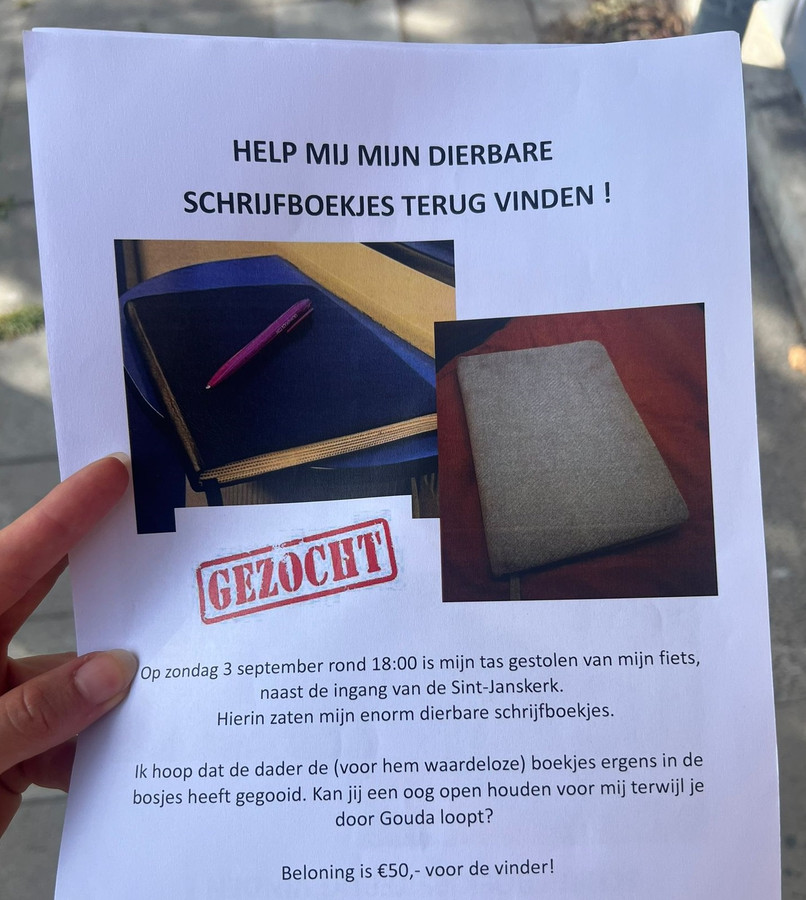 HELP MIJ MIJN DIERBARE
SCHRIJFBOEKJES TERUG VINDEN !
GEZOCHT
Op zondag 3 september rond 18:00 is mijn tas gestolen van mijn fiets,
naast de ingang van de Sint-Janskerk.
Hierin zaten mijn enorm dierbare schrijfboekjes.
Ik hoop dat de dader de (voor hem waardeloze) boekjes ergens in de
bosjes heeft gegooid. Kan jij een oog open houden voor mij terwijl je
door Gouda loopt?
Beloning is €50,- voor de vinder!